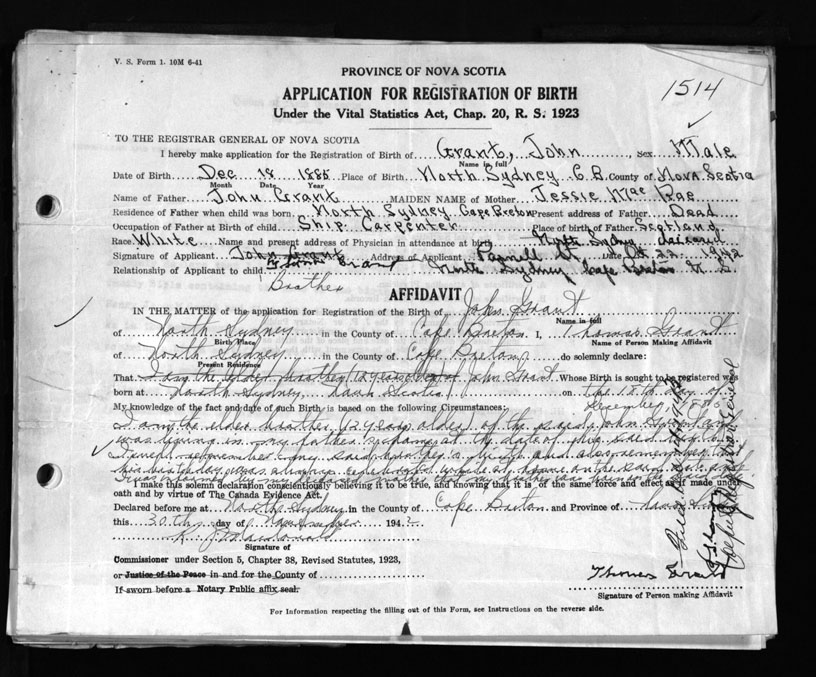 V. S. Form 1. 10M 6-41
PROVINCE OF NOVA SCOTIA
1514
APPLICATION FOR REGISTRATION OF BIRTH
Under the Vital Statistics Act, Chap. 20, R. S. 1923
TO THE REGISTRAR GENERAL OF NOVA SCOTIA
I hereby make application for the Registration of Birth of Grant, John, Sex Male
Name in full
Date of Birth Dec 18 1885 Place of Birth North Sydney C.B. County of Nova Scotia
Month Date Year
Name of Father John Grant MAIDEN NAME of Mother Jessie Mac Rae
Residence of Father when child was born North Sydney Cape Breton Present address of Father Dead
Occupation of Father at Birth of child Ship Carpenter Place of birth of Father Scotland
Race White Name and present address of Physician in attendance at birth North Sydney
Signature of Applicant John Grant Address of Applicant St Date Oct 22 1942
Relationship of Applicant to child Thomas Grant North Sydney Cape Breton N.S.
Brother
AFFIDAVIT
IN THE MATTER of the application for Registration of the Birth of John Grant
Name in full
of North Sydney in the County of Cape Breton I, Thomas Grant
Birth Place Name of Person Making Affidavit
of North Sydney in the County of Cape Breton do solemnly declare:
Present Residence
That I am the elder brother (12 years older) of John Grant Whose Birth is sought to be registered was
born at North Sydney, Nova Scotia on the 18th day of
December, 1885
My knowledge of the fact and date of such Birth is based on the following Circumstances:
I am the elder brother (12 years older) of the said John Grant and
was living in my father's home at the date of the said
I well remember my said brother's birth and also remember that
his birthday was always celebrated while at home on the same date and
I was informed by my mother that my brother was
I make this solemn declaration conscientiously believing it to be true, and knowing that it is of the same force and effect as if made under
oath and by virtue of The Canada Evidence Act.
Declared before me at North Sydney in the County of Cape Breton and Province of Nova Scotia
this 30th day of November 1942
Signature of
Commissioner under Section 5, Chapter 38, Revised Statutes, 1923,
or Justice of the Peace in and for the County of
If sworn before a Notary Public affix seal.
Thomas Grant
Signature of Person making Affidavit
For Information respecting the filling out of this Form, see Instructions on the reverse side.